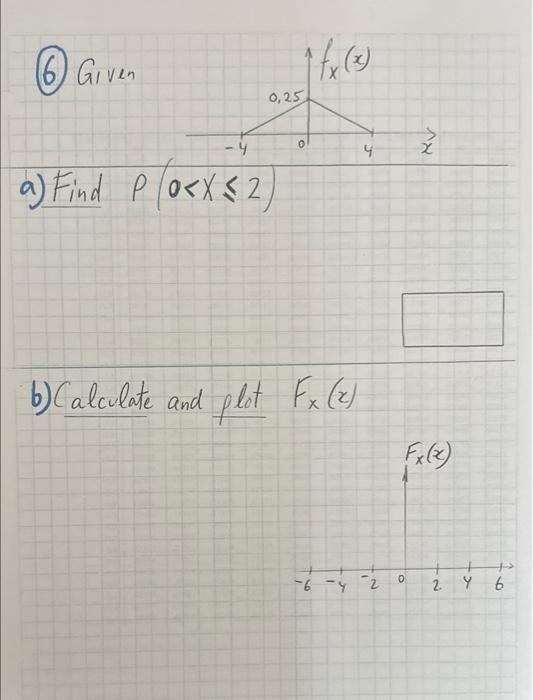 6 Given
fx(x)
0,25
-4 0 4 x
a) Find P(0<X≤2)
b) Calculate and plot Fx(x)
Fx(x)
-6 -4 -2 0 2 4 6